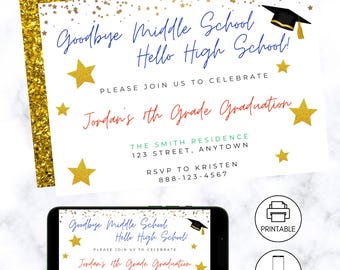 Goodbye Middle School
Hello High School!
PLEASE JOIN US TO CELEBRATE
Jordan's 8th Grade Graduation
THE SMITH RESIDENCE
123 STREET, ANYTOWN
RSVP TO KRISTEN
888-123-4567
PRINTABLE
Goodbye Middle School
Hello High School!
PLEASE JOIN US TO CELEBRATE
Jordan's 8th Grade Graduation